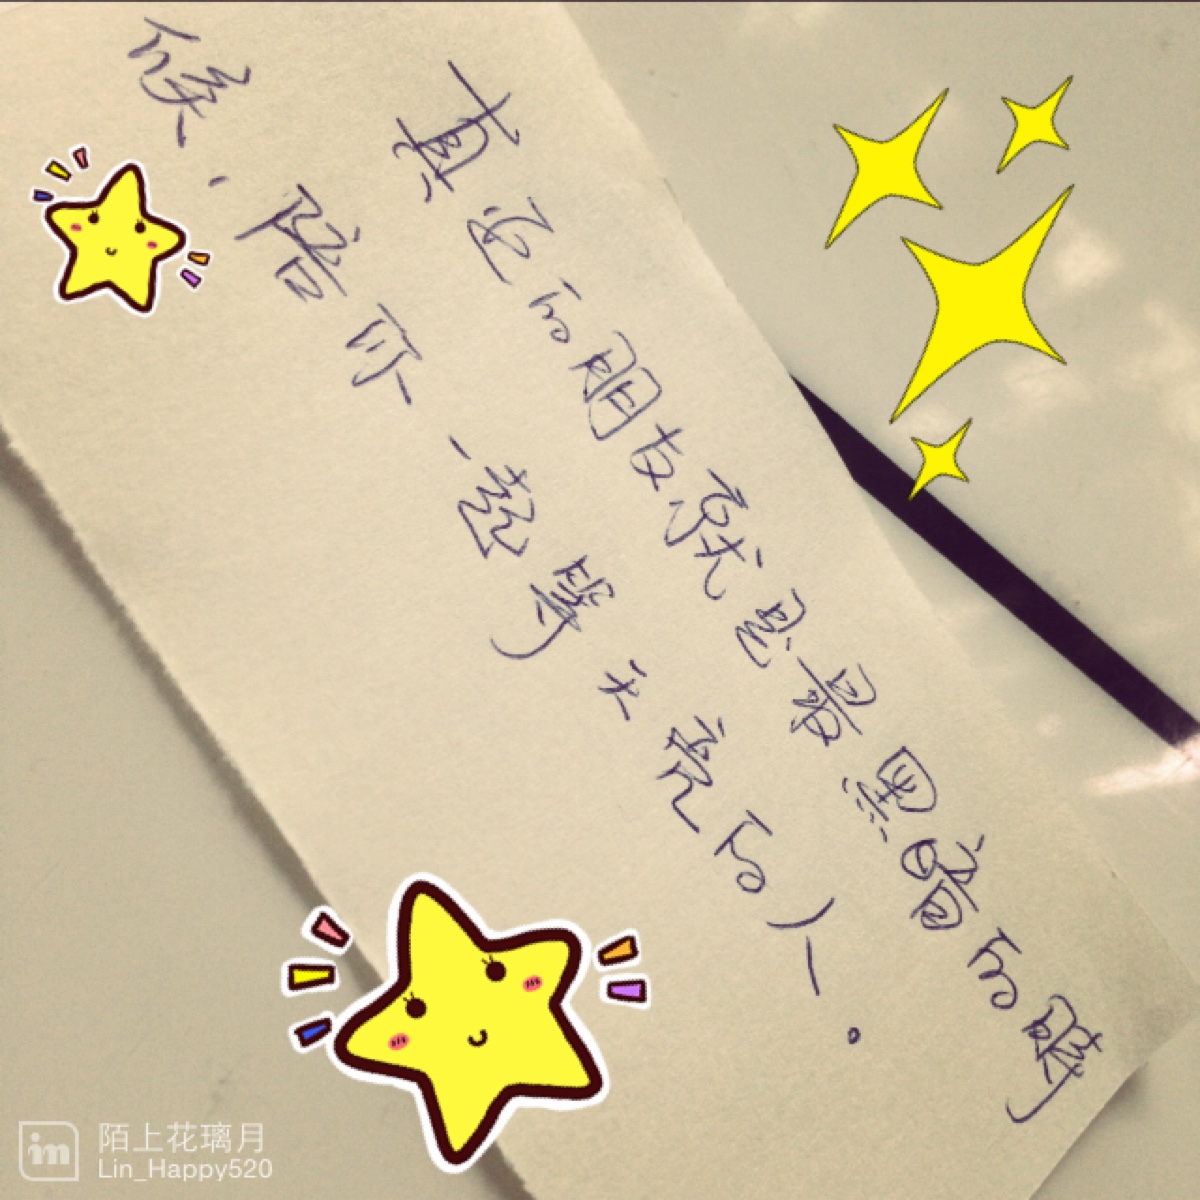 真正的朋友就是最黑暗的時
候、陪你一起等天亮的人。
陌上花璃月
Lin_Happy520